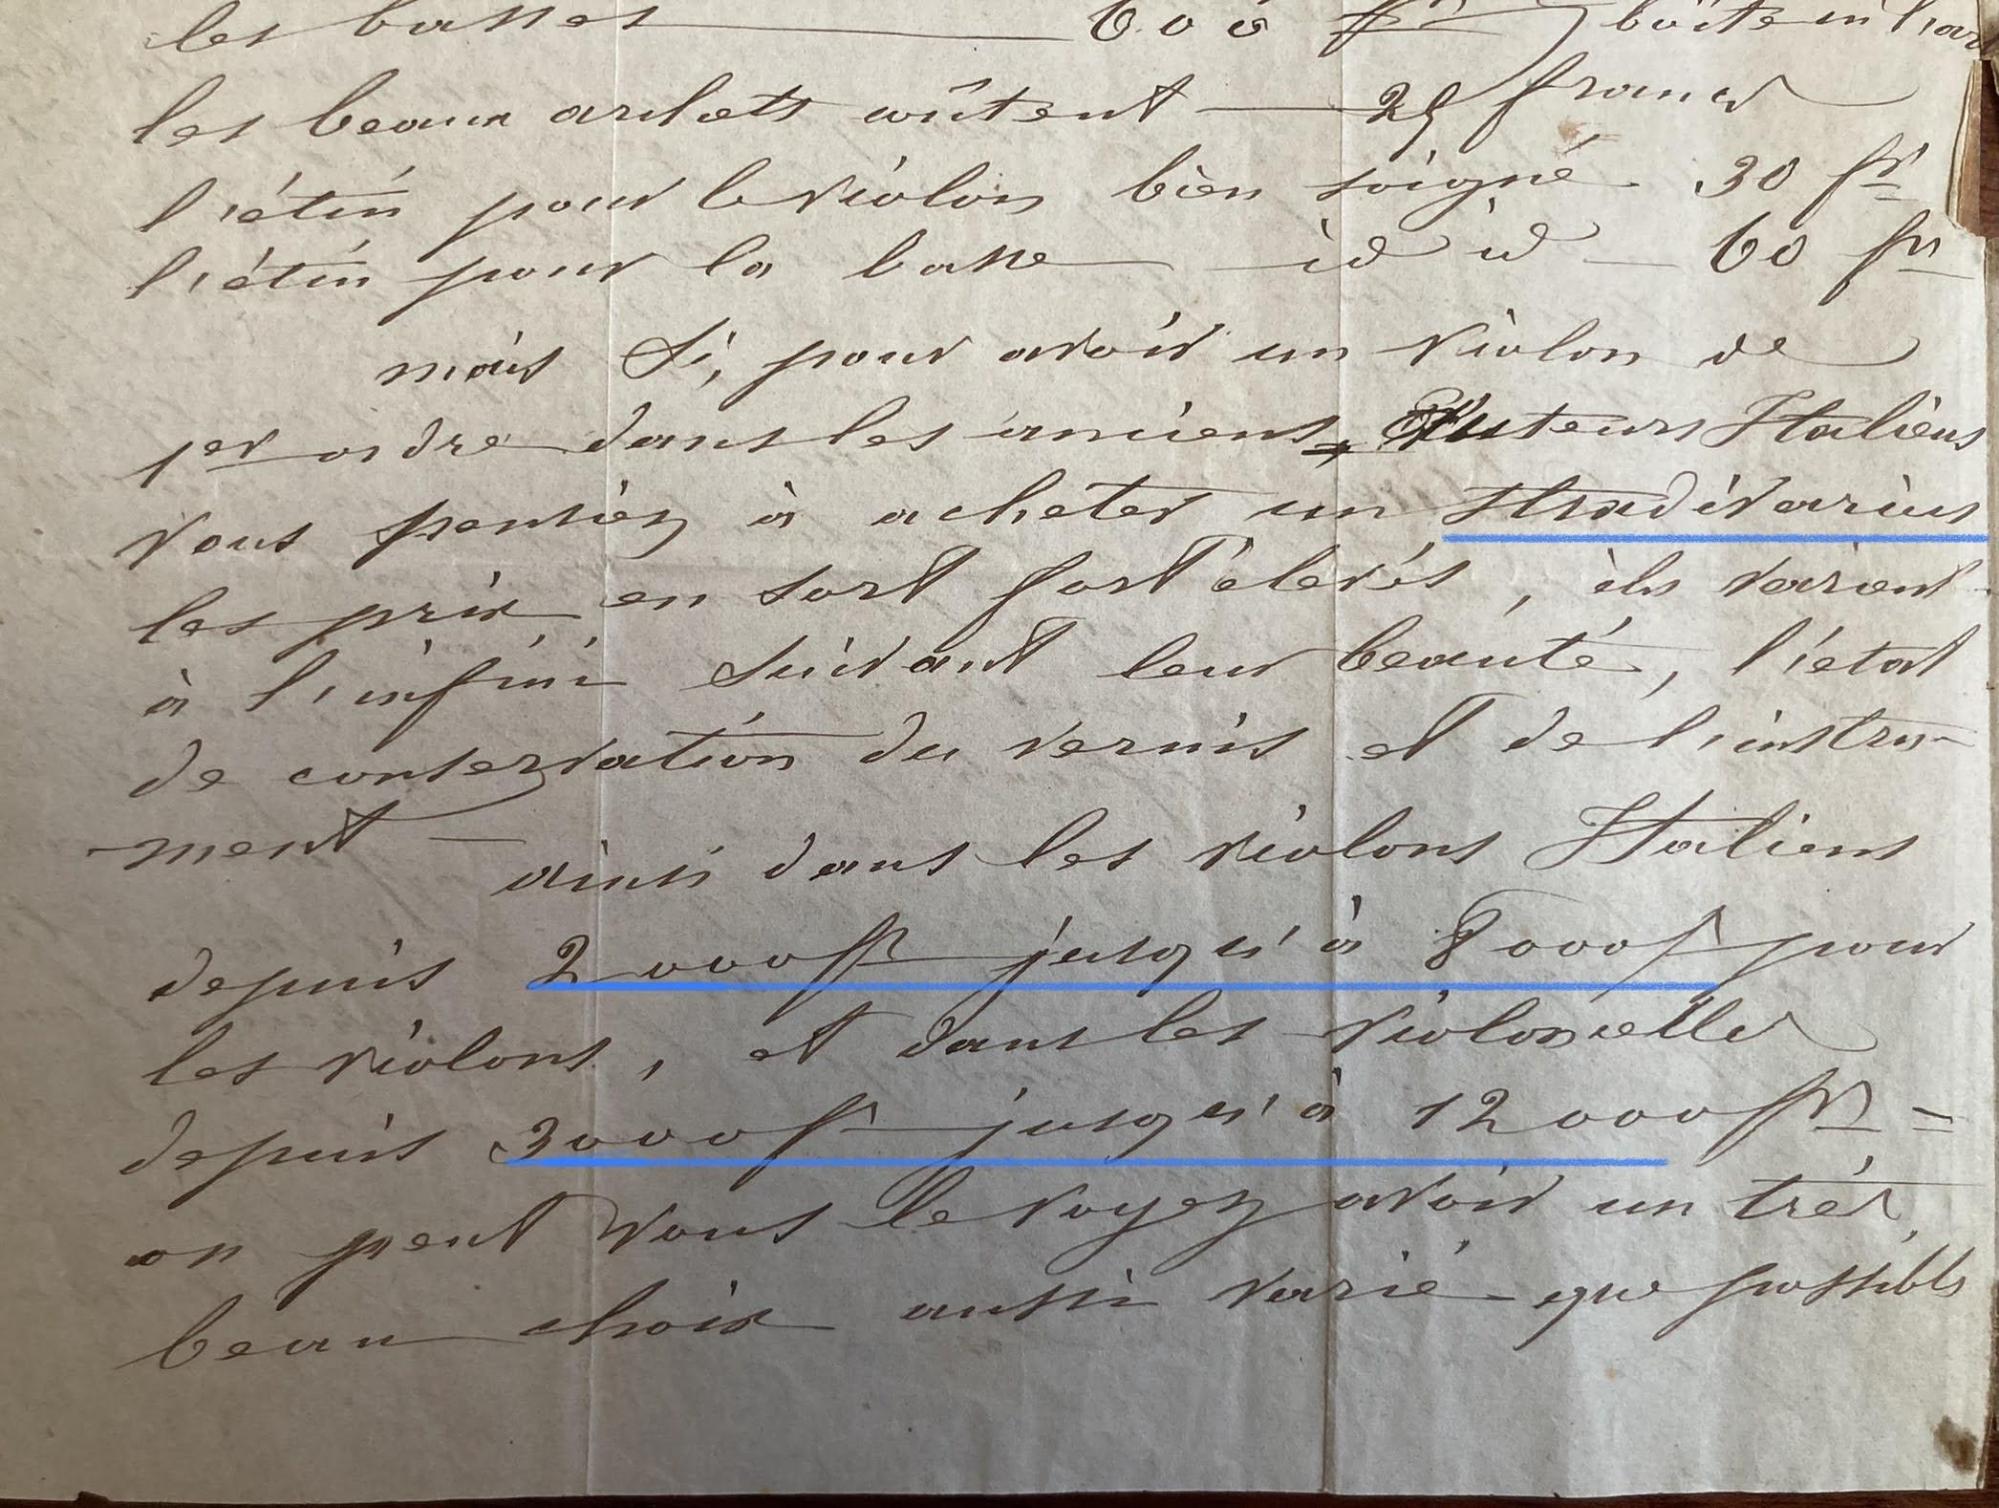 les basses ——— 600 fr boîte en
les beaux archets coûtent — 25 francs
l'étui pour le violon bien soigné - 30 fr
l'étui pour la basse id id — 60 fr
mais si, pour avoir un violon de
1er ordre dans les anciens Auteurs Italiens
vous pensiez à acheter un Stradivarius
les prix en sont fort élevés, ils varient
à l'infini suivant leur beauté, l'état
de conservation du vernis et de l'instru-
-ment — ainsi dans les violons Italiens
depuis 2000 fr jusqu'à 8000 f pour
les violons, et dans les violoncelles
depuis 3000 fr jusqu'à 12000 fr =
on peut vous le voyez avoir un très
beau choix aussi varié que possible